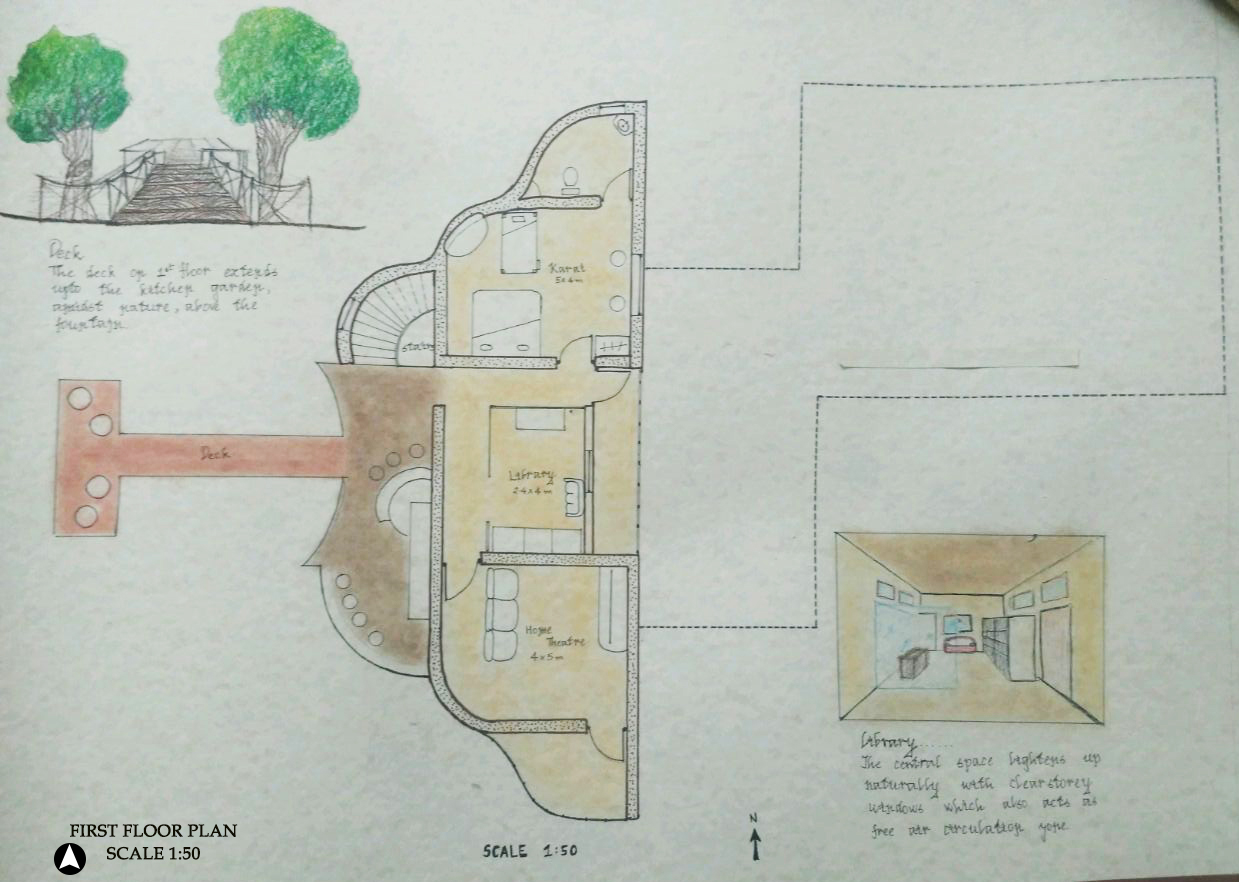 Deck
The deck on 1st floor extends
upto the kitchen garden,
amidst nature, above the
fountain.
Karat
5x4m
Stairs
Deck
Library
2.4x4m
Home
Theatre
4x5m
Library......
The central space lightens up
naturally with clearstorey
windows which also acts as
free air circulation zone.
FIRST FLOOR PLAN
SCALE 1:50
SCALE 1:50
N